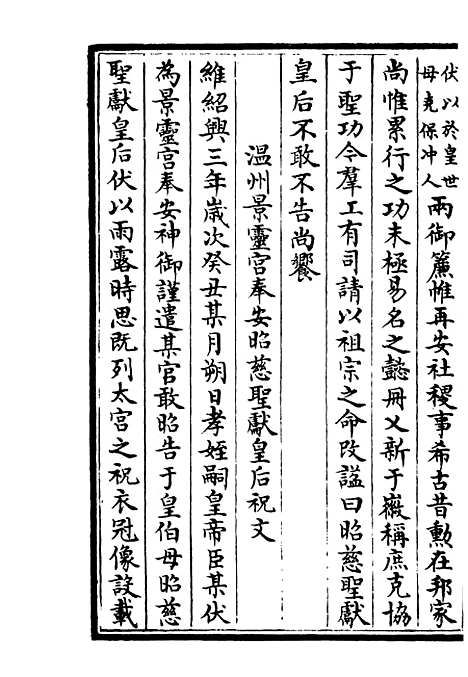 伏以於皇世
母克保冲人
兩御簾帷再安社稷事希古昔勲在邦家
尚惟累行之功未極易名之懿冊乂新于嶶稱庶克協
于聖功今羣工有司請以祖宗之命改諡曰昭慈聖獻
皇后不敢不告尚饗
温州景靈宫奉安昭慈聖獻皇后祝文
維紹興三年歲次癸丑某月朔日孝姪嗣皇帝臣某伏
為景靈宫奉安神御謹遣某官敢昭告于皇伯母昭慈
聖獻皇后伏以雨露時思既列太宫之祝衣冠像設載